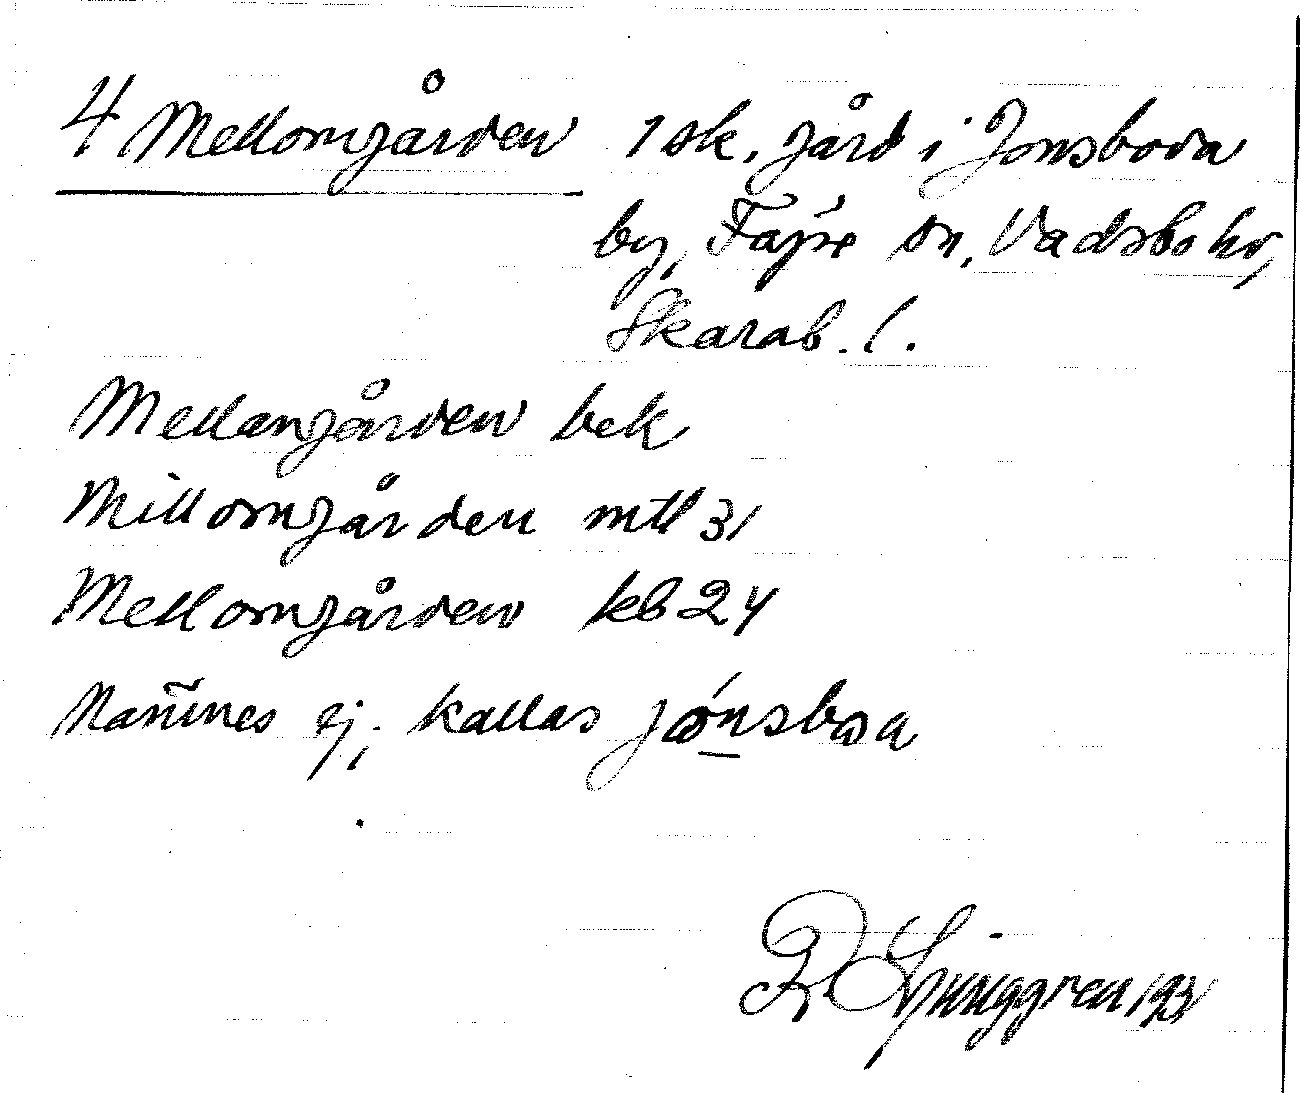 4 Mellomgården 1 sk. gård i Jonsboda
by, Fägre sn, Vadsbo hd,
Skarab. l.
Mellangården bek
Millomgården mtl 31
Mellomgården kb 24
Namnes ej; kallas jónsboa
R Ljunggren 1931